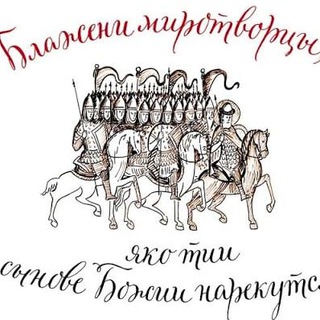 Блажени миротворцы,
яко тии
сынове Божии нарекутс